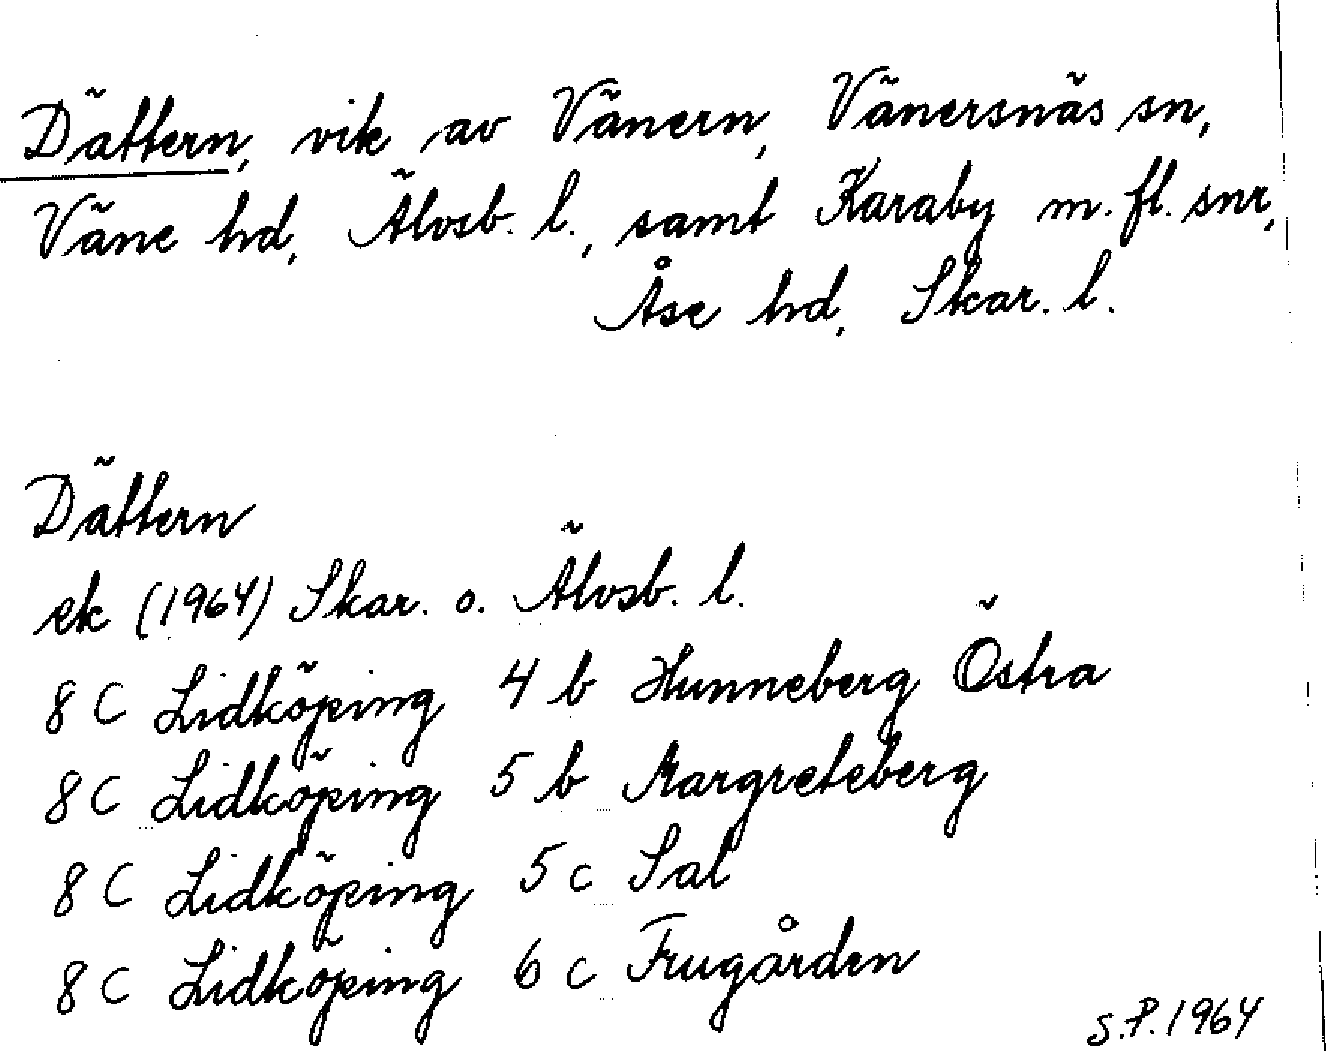 Dättern, vik av Vänern, Vänersnäs sn,
Väne hd, Älvsb. l., samt Karaby m. fl. snr,
Åse hd, Skar. l.
Dättern
ek (1964) Skar. o. Älvsb. l.
8 C Lidköping 4 b Hunneberg Östra
8 C Lidköping 5 b Margreteberg
8 C Lidköping 5 c Sal
8 C Lidköping 6 c Frugården
S.P. 1964